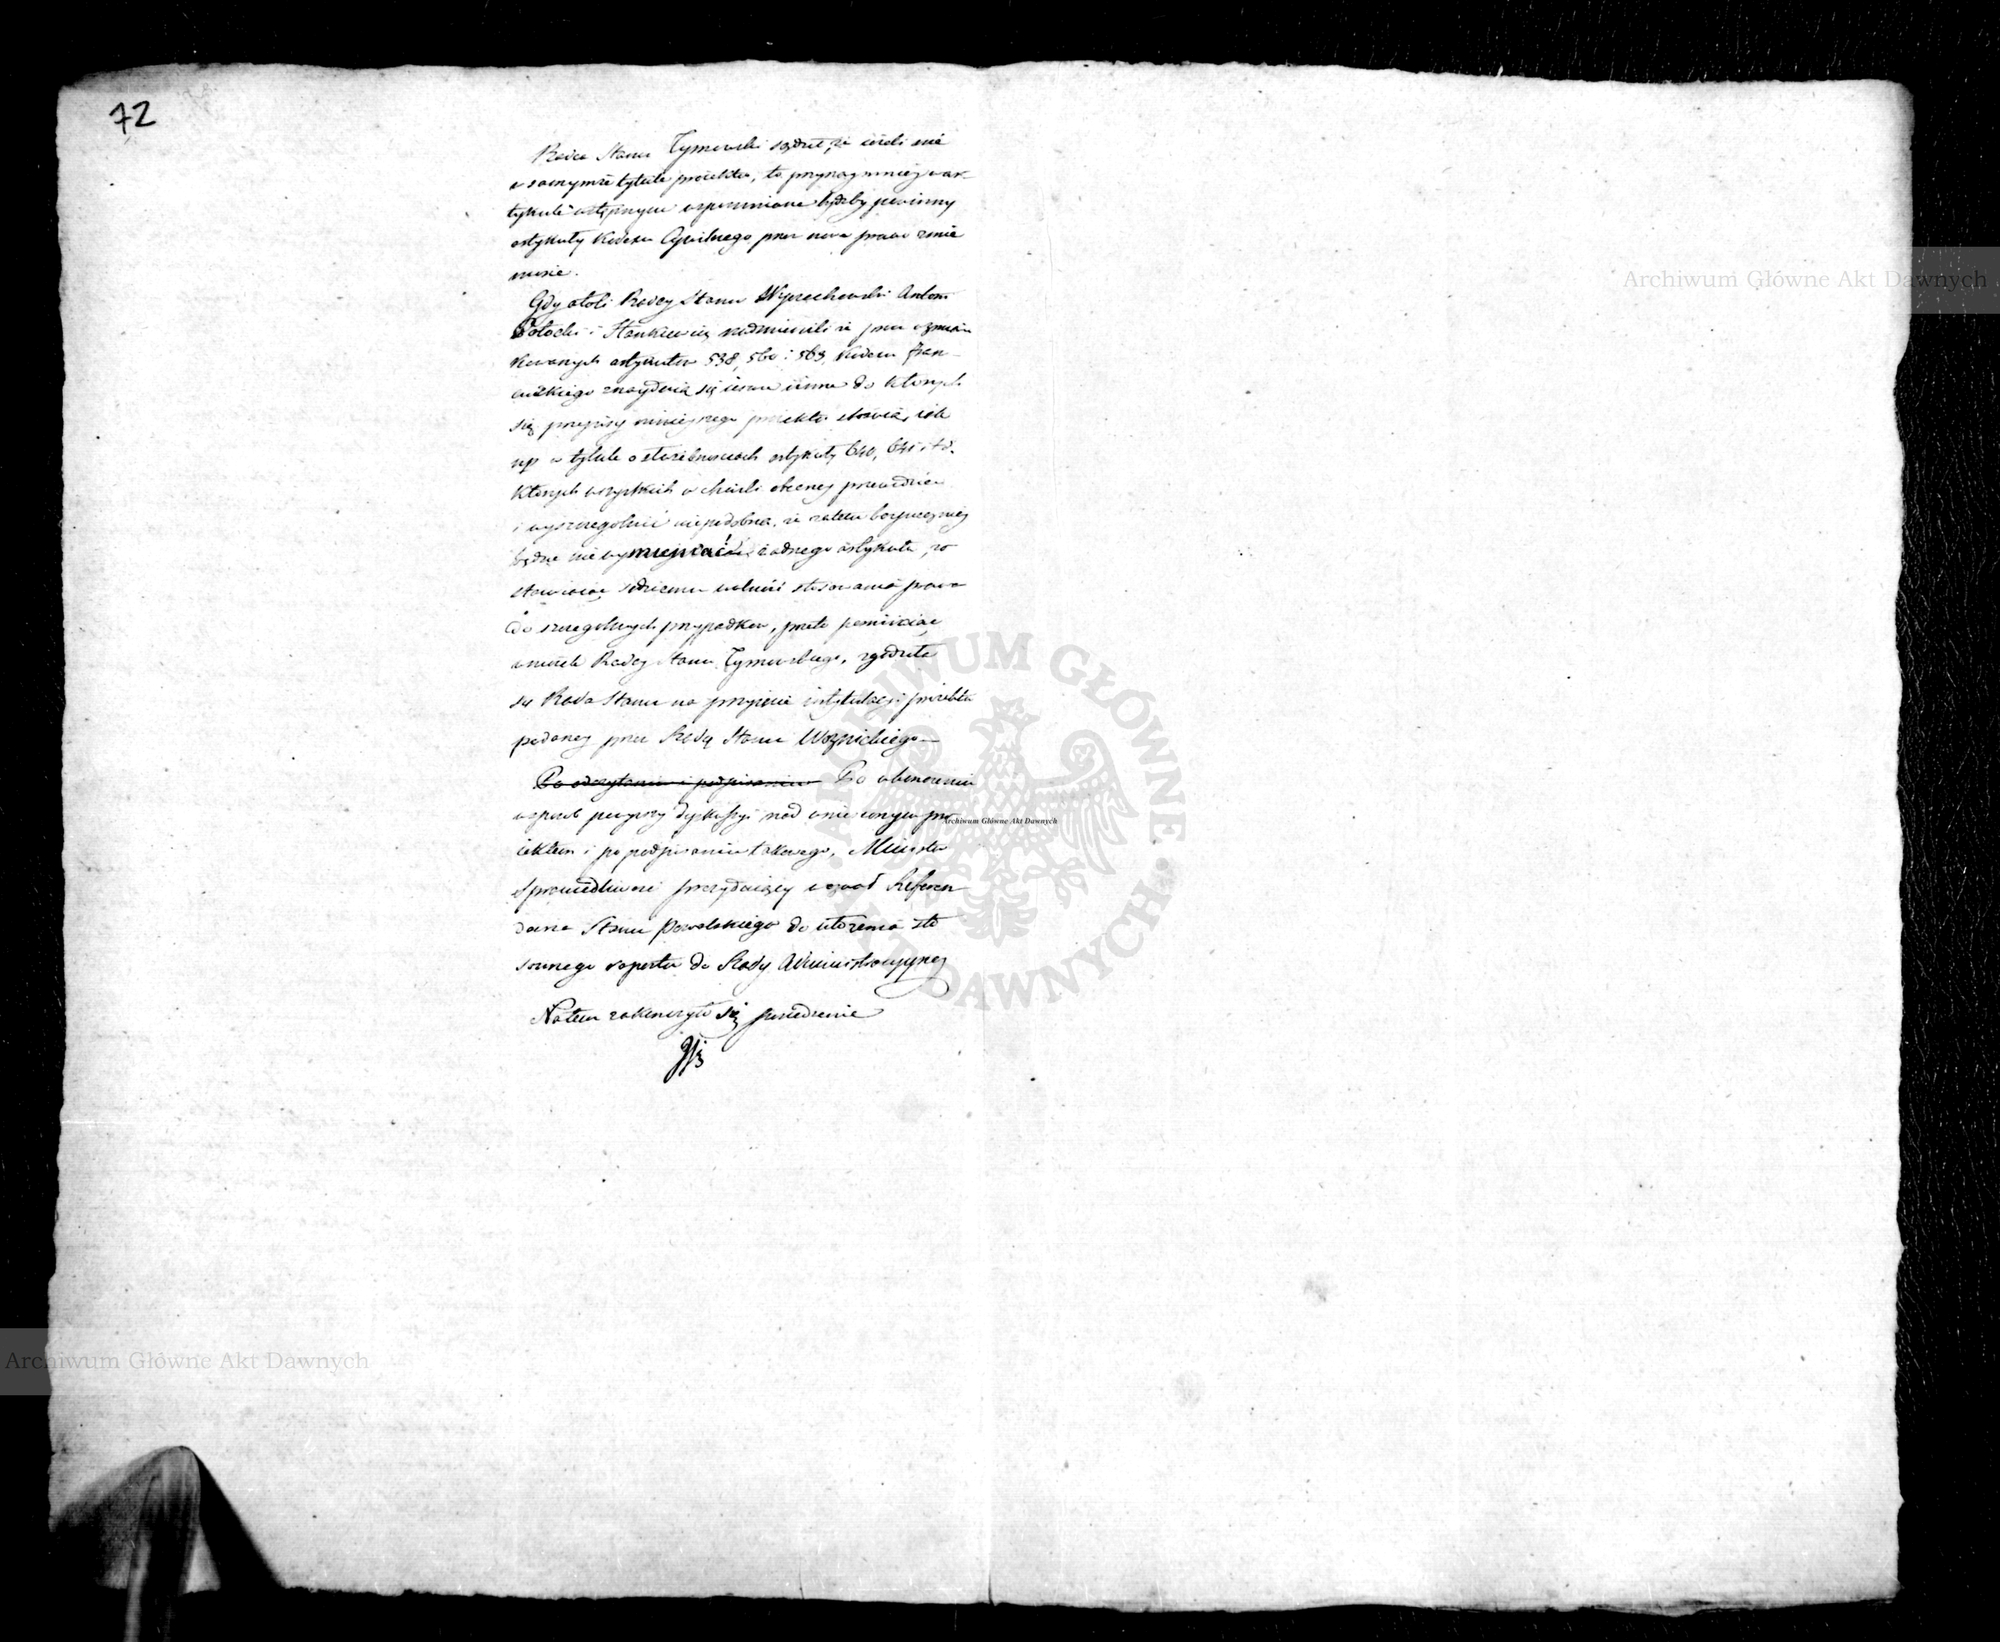 72
Radca Stanu Tymowski sądził, że ieżeli nie
w samymże tytule proiektu, to przynaymniey w ar-
tykule wstępnym wspomniane bydźby powinny
artykuły Kodexu Cywilnego przez nowe prawo zmie
nione.
Gdy atoli Radcy Stanu Wyczechowski Anton
Potocki i Stankiewicz nadmienili że prócz wzmian
kowanych artykułów 538, 560 i 563 Kodexu fran-
cuzkiego znayduią się ieszcze inne do których
się przepisy ninieyszego proiektu stosuią, iak
np w tytule o służebnościach artykuły 640, 641 i td.
których wszystkich w chwili obecney przewidzieć
i wyszczególnić niepodobna, że zatem bezpieczniey
będzie nie wymieniać żadnego artykułu, zo
stawiaiąc sędziemu wolność stosowania prawa
do szczególnych przypadków, przeto pomiiaiąc
wniosek Radcy Stanu Tymowskiego, zgodziła
się Rada Stanu na przyięcie intytulacyi proiektu
podaney przez Radcę Stanu Woznickiego
Po odczytaniu i podpisaniu Po ukończeniu
w sposób powyższy dyskussyi nad wniesionym pro
iektem i po podpisaniu takowego, Minister
Sprawiedliwości prezyduiący wezwał Referen
darza Stanu Powalskiego do ułożenia sto
sownego raportu do Rady Administracyyney
Natem zakończyło się posiedzenie
Archiwum Główne Akt Dawnych
Archiwum Główne Akt Dawnych
Archiwum Główne Akt Dawnych
ARCHIWUM GŁÓWNE AKT DAWNYCH